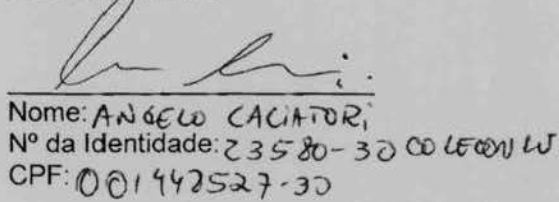 Nome: ANGELO CACIATORI
Nº da Identidade: 23580-30
CPF: 001447527-30